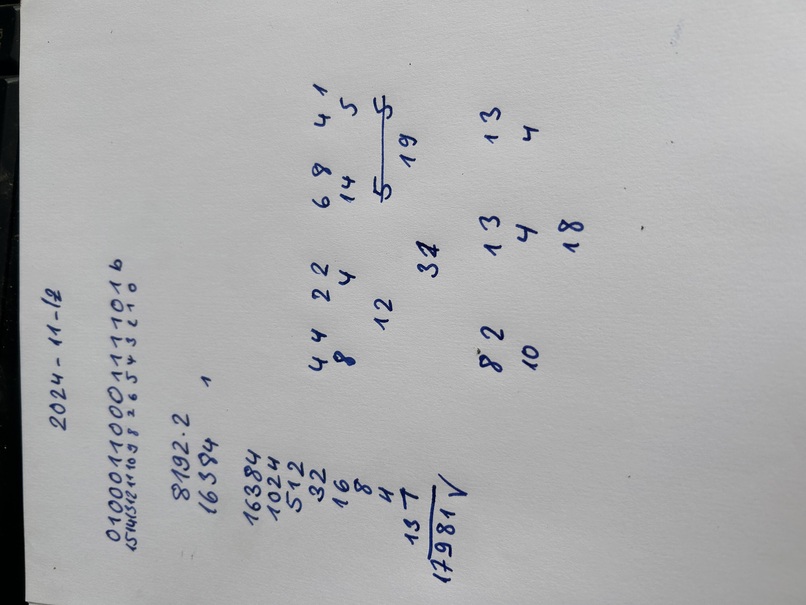 2024-11-12
0100011000111101b
15 14 13 12 11 10 9 8 7 6 5 4 3 2 1 0
8192·2
16384 1
16384
1024
512
32
16
8
4
13 1
17981 V
4 4 2 2 6 8 4 1
8 4 14 5
12 5 5
19
31
8 2 13 13
10 4 4
18